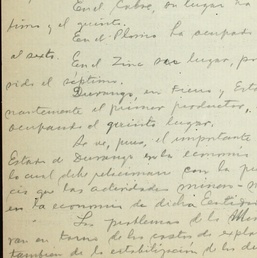 En el Cobre, su lugar ha
timo y el quinto.
En el Plomo ha ocupado
al sexto.
En el Zinc su lugar, po
sido el septimo.
Durango, en Fierro y Esta
nantemente el primer productor,
ocupando el quinto lugar.
Se ve, pues, el importante
Estado de Durango en la economía
lo cual debe relacionarse con la
que las actividades
en la economía de dicha Entidad
Los problemas de la
van en torno de los costos de explo
tambien de la estabilización de los